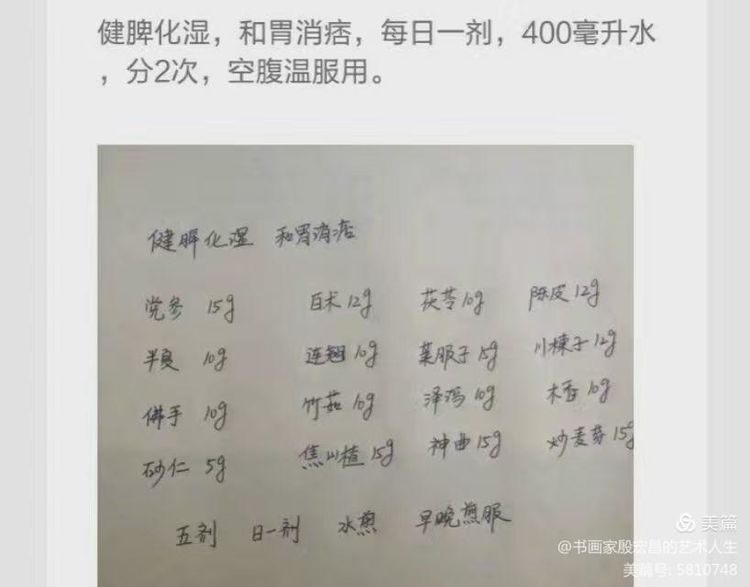 健脾化湿，和胃消痞，每日一剂，400毫升水
，分2次，空腹温服用。
健脾化湿 和胃消痞
党参 15g 白术 12g 茯苓 10g 陈皮 12g
半夏 10g 连翘 10g 莱服子 15g 川楝子 12g
佛手 10g 竹茹 10g 泽泻 10g 木香 10g
砂仁 5g 焦山楂 15g 神曲 15g 炒麦芽 15g
五剂 日一剂 水煎 早晚煎服
美篇
@书画家殷宏昌的艺术人生
美篇号: 5810748